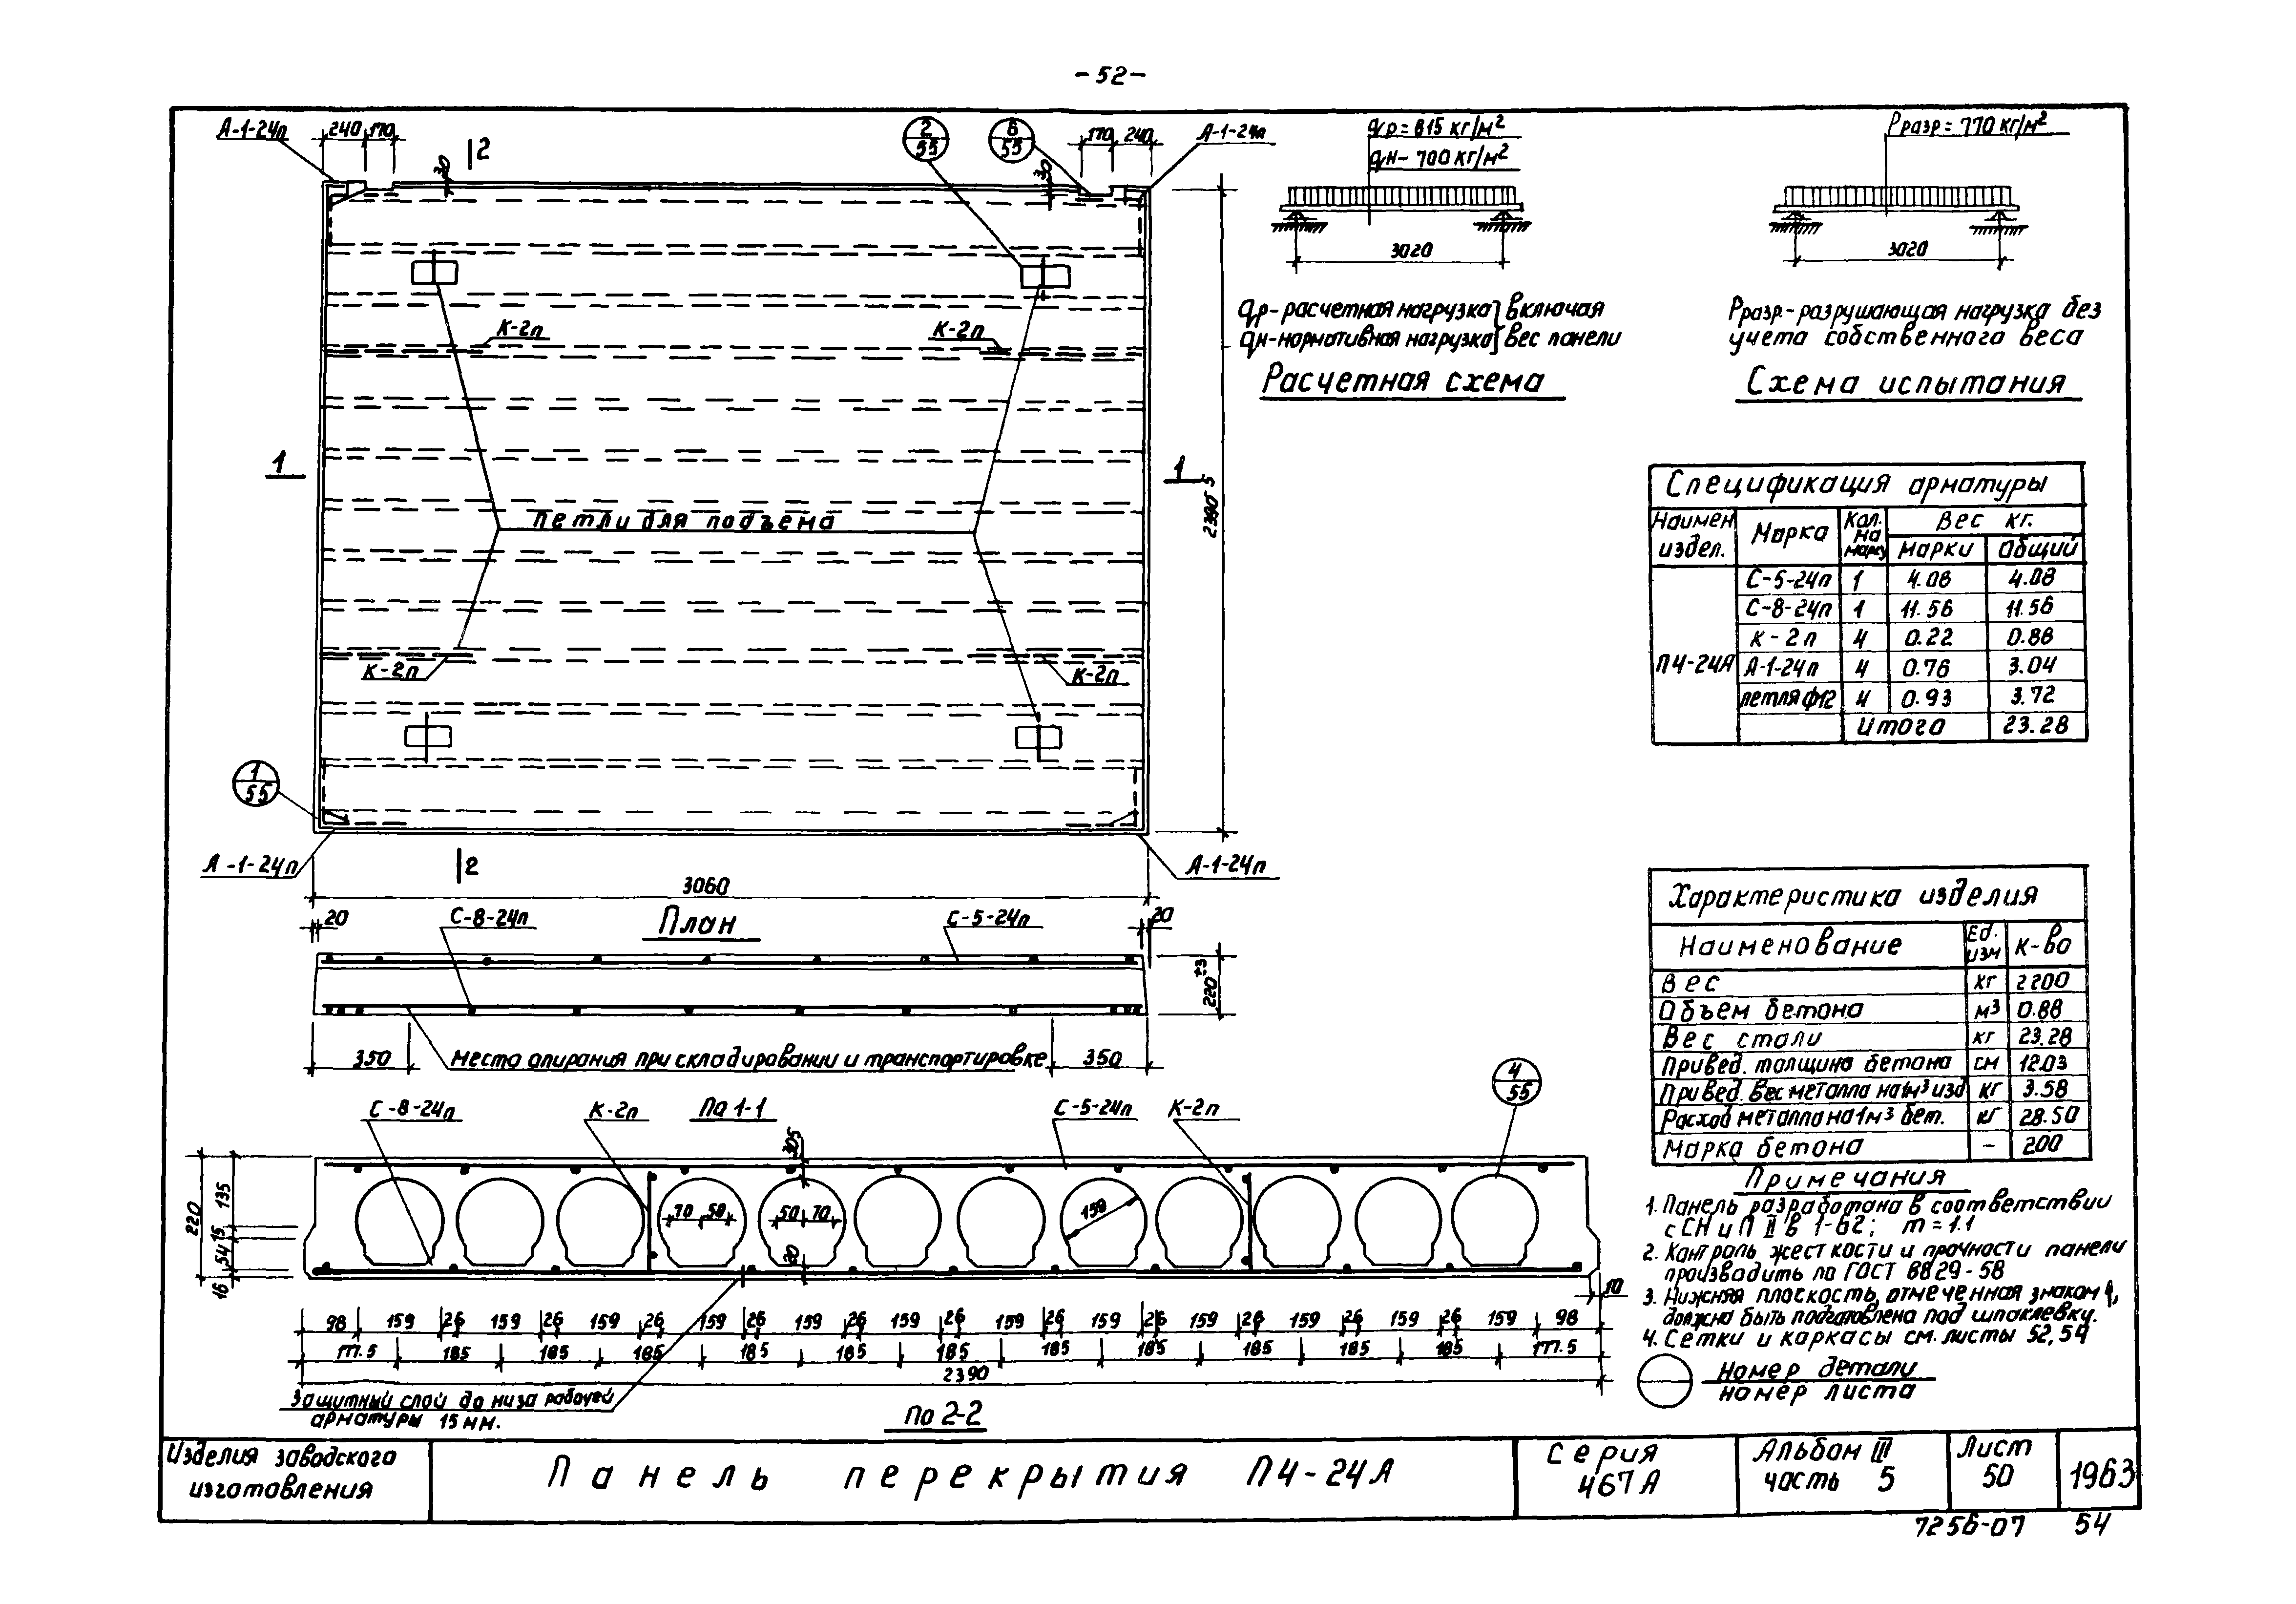 - 52 -
А-1-24п
240
170
2
2
55
6
55
170
240
А-1-24п
30
30
К-2п
К-2п
1
1
петли для подъема
2390
5
К-2п
К-2п
1
55
А-1-24п
2
А-1-24п
3060
План
20
С-8-24п
С-5-24п
20
220
±3
350
место опирания при складировании и транспортировке
350
По 1-1
qр= 815 кг/м²
qн- 700 кг/м²
3020
qр-расчетная нагрузка } включая
qн-нормативная нагрузка } вес панели
Расчетная схема
Рразр= 770 кг/м²
3020
Рразр.-разрушающая нагрузка без
учета собственного веса
Схема испытания
Спецификация арматуры
Наимен издел. Марка Кол. на марку Вес кг.
марки общий
П4-24А
С-5-24п 1 4.08 4.08
С-8-24п 1 11.56 11.56
К-2п 4 0.22 0.88
А-1-24п 4 0.76 3.04
петля ф12 4 0.93 3.72
Итого 23.28
Характеристика изделия
Наименование Ед. изм К-во
Вес кг 2200
Объем бетона м³ 0.88
Вес стали кг 23.28
Привед. толщина бетона см 12.03
Привед. вес металла на 1м³ изд кг 3.58
Расход металла на 1м³ бет. кг 28.50
Марка бетона - 200
Примечания
1. Панель разработана в соответствии
с СН и П II в 1-62; m = 1.1
2. Контроль жесткости и прочности панели
производить по ГОСТ 8829-58
3. Нижняя плоскость, отмеченная знаком ,
должна быть подготовлена под шпаклевку.
4. Сетки и каркасы см. листы 52, 54
номер детали
номер листа
С-8-24п
К-2п
С-5-24п
К-2п
4
55
220
135
15
54
16
30.5
70 50
50 70
20
159
10
98 159 26 159 26 159 26 159 26 159 26 159 26 159 26 159 26 159 26 159 26 159 26 159 98
177.5 185 185 185 185 185 185 185 185 185 185 185 177.5
2390
Защитный слой до низа рабочей
арматуры 15 мм.
По 2-2
Изделия заводского
изготовления
Панель перекрытия П4-24А
Серия
467А
Альбом III
часть 5
Лист
50
1963
7256-07 54